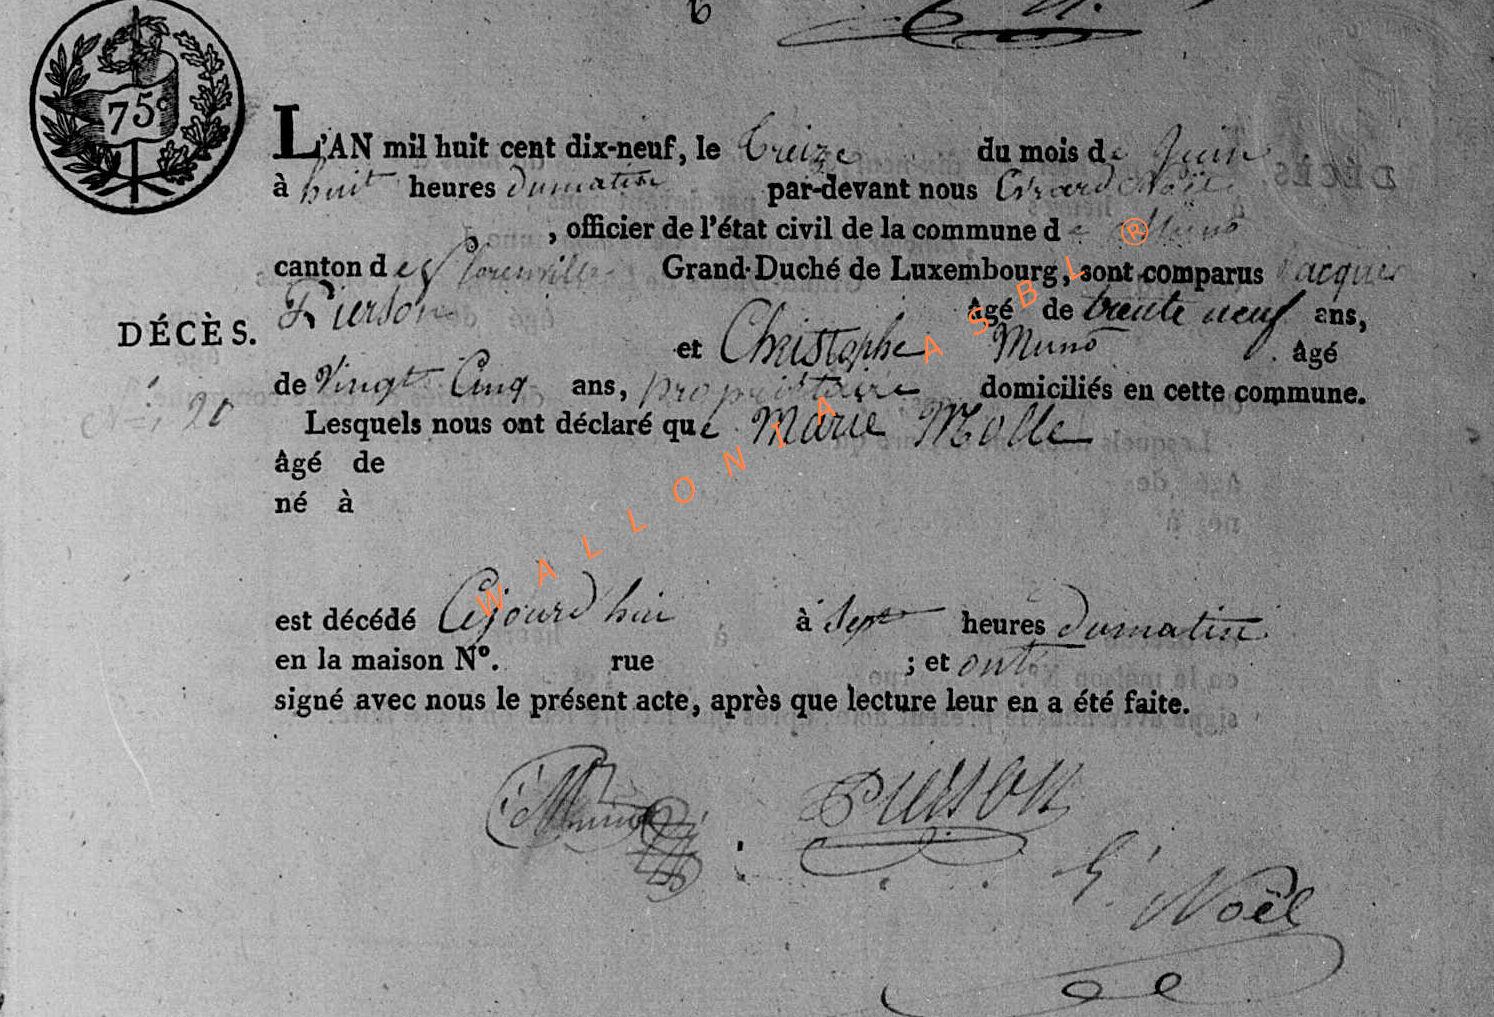 75c
L'AN mil huit cent dix-neuf, le treize du mois de Juin
à huit heures dumatin par-devant nous Noël
, officier de l'état civil de la commune de Muno
canton de florenville Grand-Duché de Luxembourg, sont comparus Jacques
Pierson âgé de trente neuf ans,
DÉCÈS.
et Christophe Muno âgé
de Vingt Cinq ans, propriétaire domiciliés en cette commune.
N° 20
Lesquels nous ont déclaré que Marie Molle
âgé de
né à
est décédé Cejourd'hui à Sept heures dumatin
en la maison N°. rue ; et ont
signé avec nous le présent acte, après que lecture leur en a été faite.
CMuno PIERSON
G. Noël
WALLONIA ASBL ®